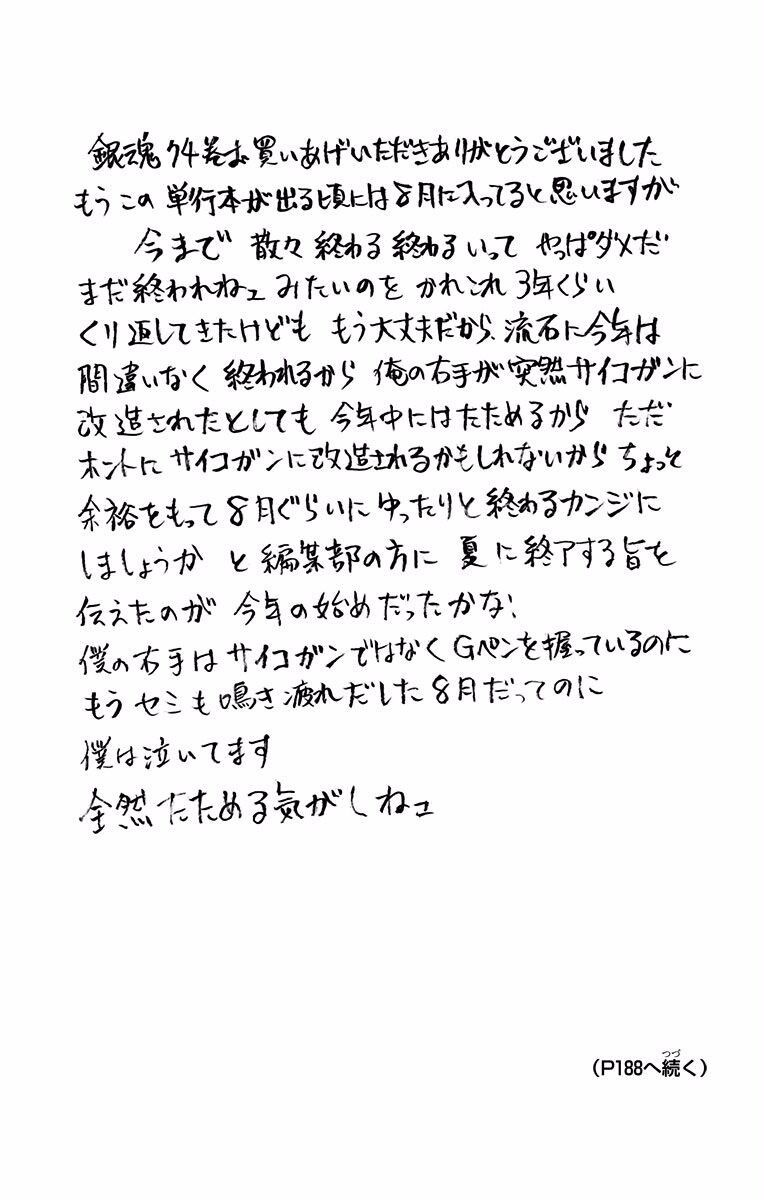 銀魂74巻お買いあげいただきありがとうございました
もうこの単行本が出る頃には8月に入ってると思いますが
今まで 散々終わる終わるいって やっぱダメだ
まだ終われねェ みたいのを かれこれ3年くらい
くり返してきたけども もう大丈夫だから、流石に今年は
間違いなく 終われるから 俺の右手が突然サイコガンに
改造されたとしても 今年中にはたためるから ただ
ホントに サイコガンに改造されるかもしれないから ちょっと
余裕をもって 8月ぐらいに ゆったりと終わるカンジに
しましょうか と編集部の方に 夏に終了する旨を
伝えたのが 今年の始めだったかな、
僕の右手はサイコガンではなくGペンを握っているのに
もうセミも鳴き疲れだした8月だってのに
僕は泣いてます
全然たためる気がしねェ
(P188へ続く)
つづ